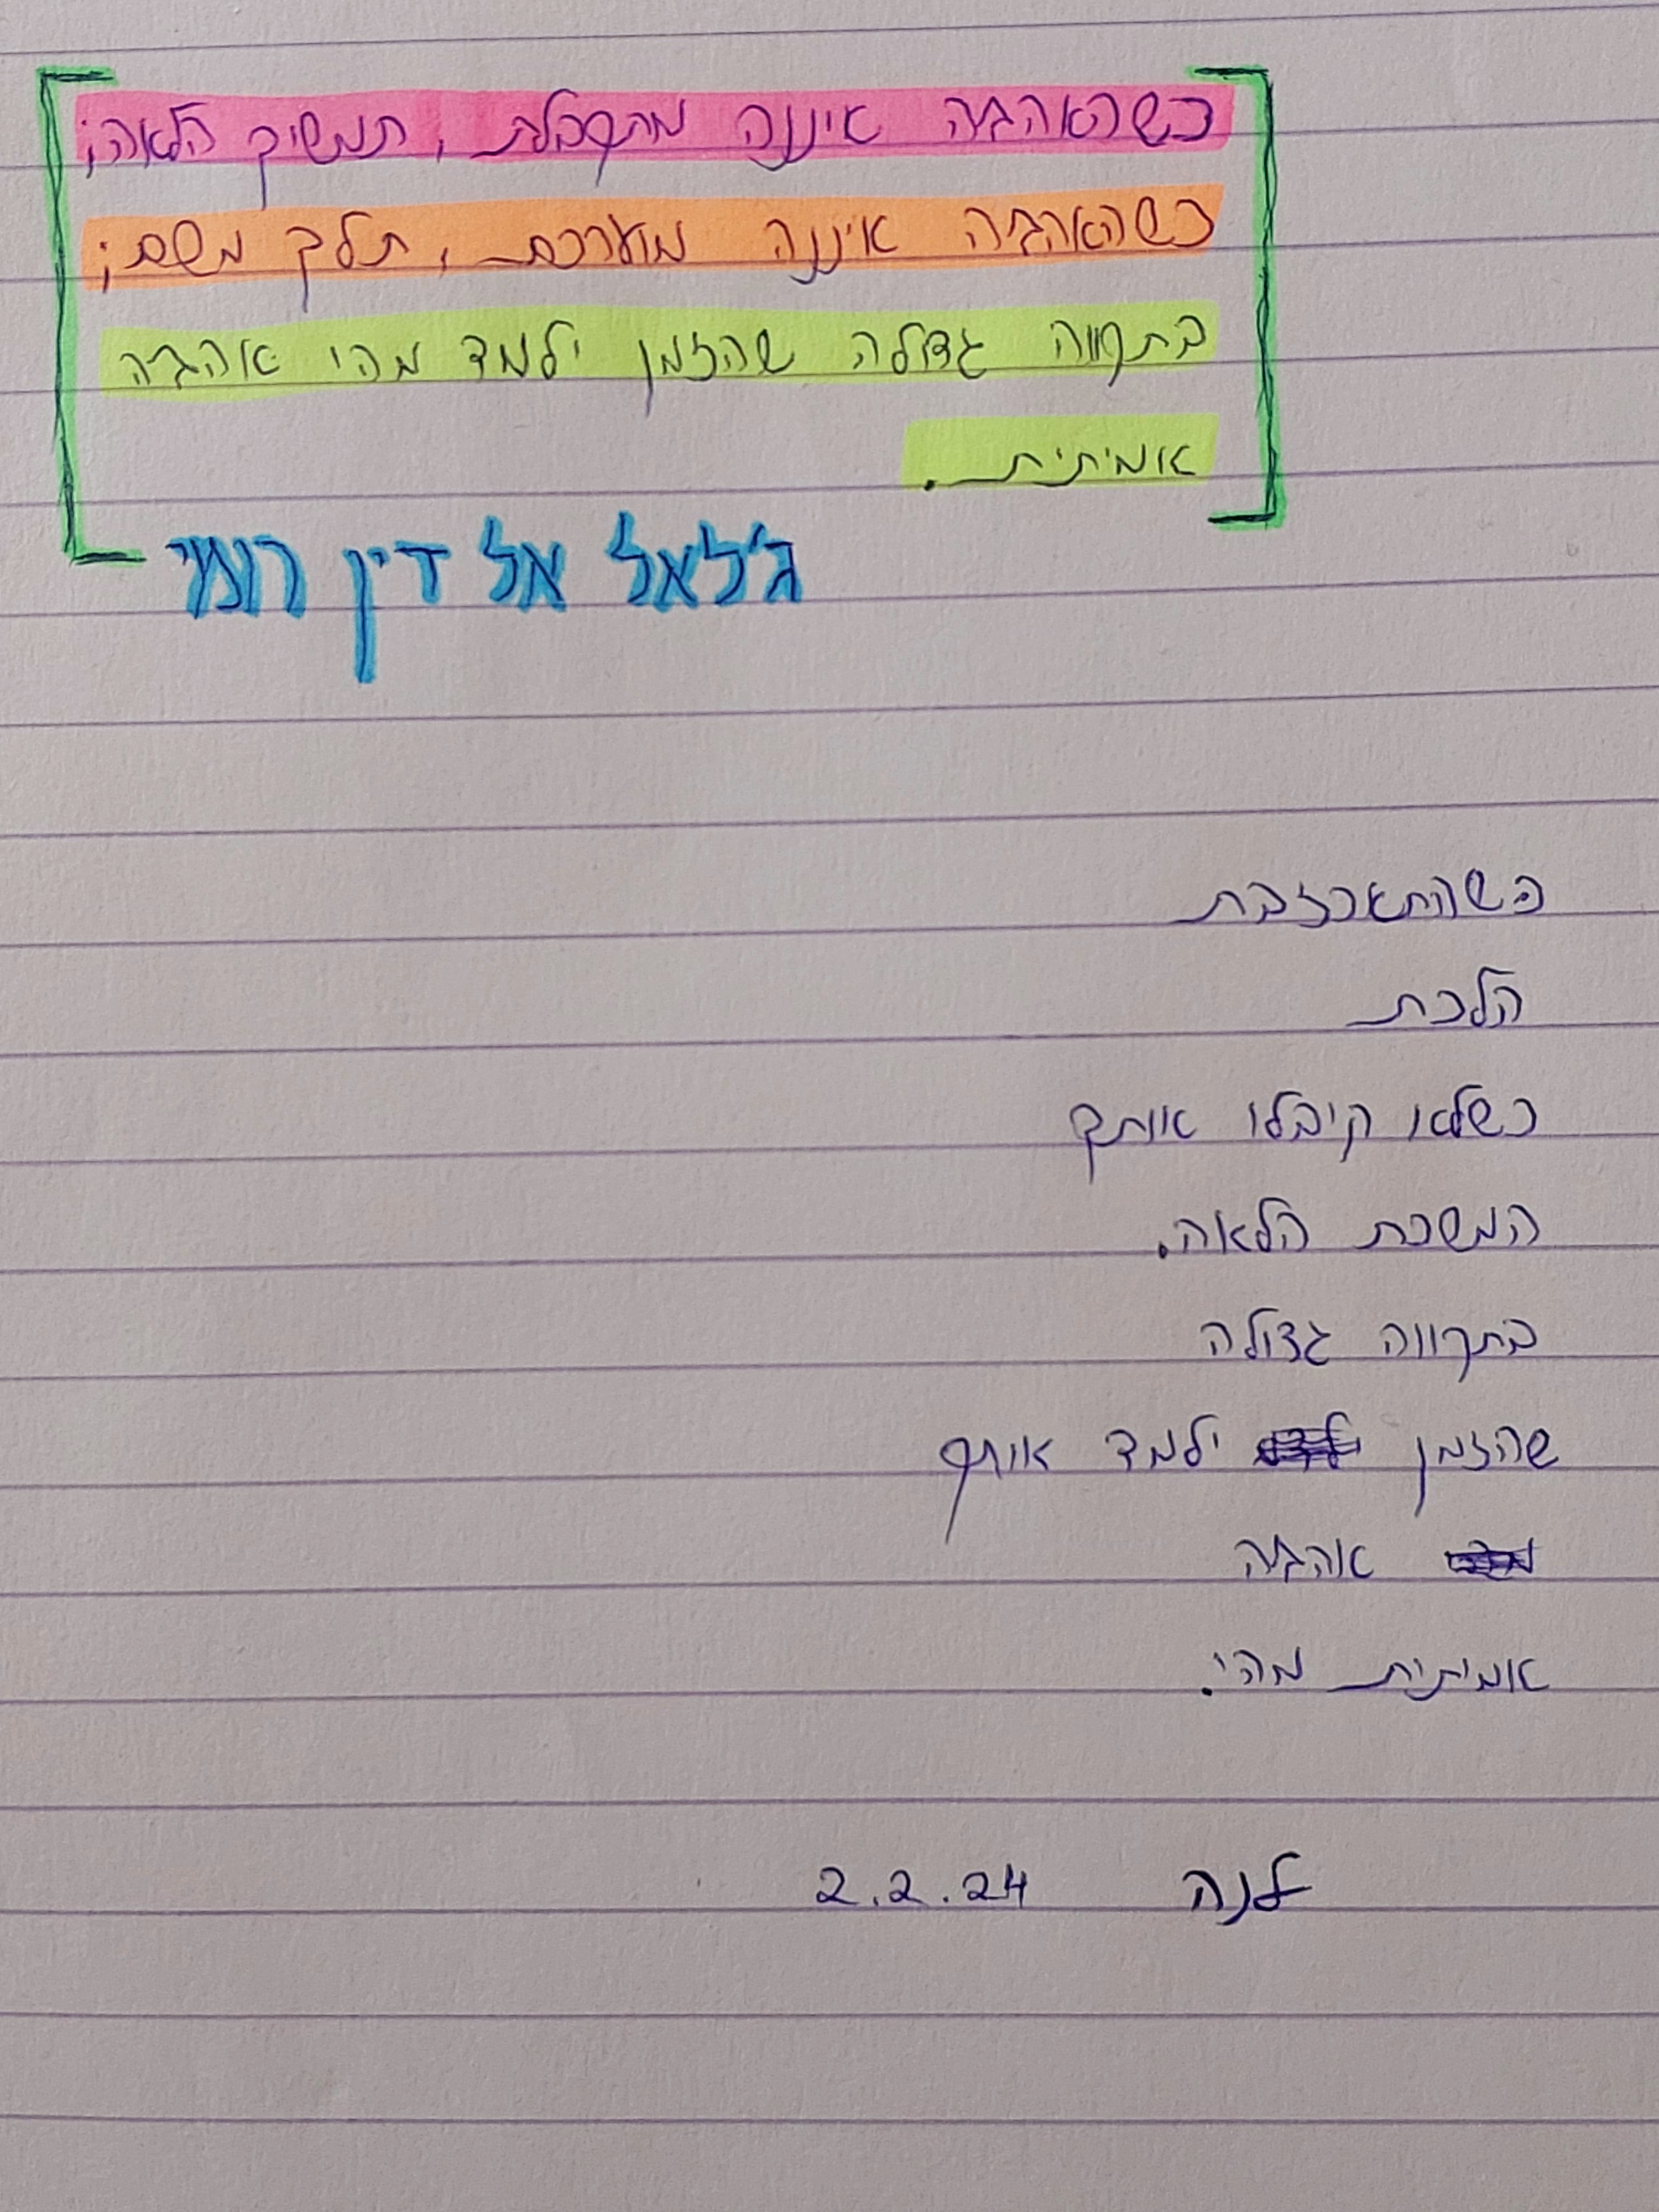 כשהאהבה איננה מתקבלת, תמשיך הלאה;
כשהאהבה איננה מוערכת, תלך משם;
בתקווה גדולה שהזמן ילמד מהי אהבה
אמיתית.
ג'לאל אל דין רומי
כשהתאכזבת
הלכת
כשלא קיבלו אותך
המשכת הלאה.
בתקווה גדולה
שהזמן ילמד אותך
אהבה
אמיתית מהי.
לנה 2.2.24